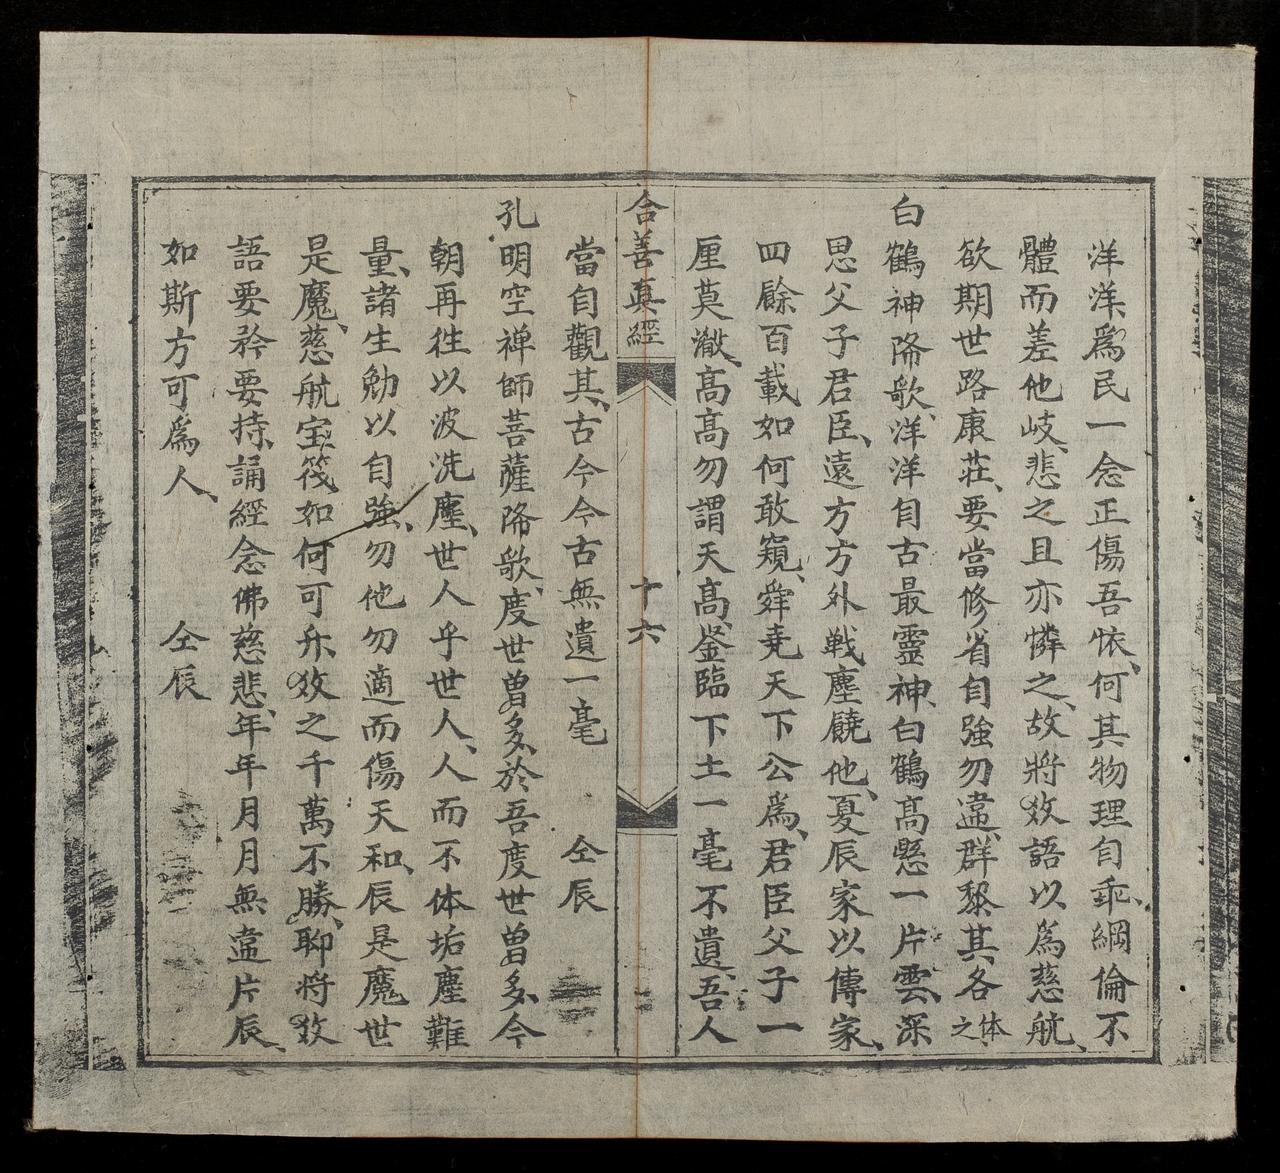 洋洋為民一念正傷吾依、何其物理自乖、綱倫不
體而差他岐、悲之且亦憐之、故將效語以為慈航、
欲期世路康莊、要當修省自強勿違、群黎其各体之
白鶴神降歌、洋洋自古最靈神、白鶴高懸一片雲、深
思父子君臣、遠方方外戦塵饒他、憂辰家以傳家、
四餘百載如何敢窺、舜尭天下公為、君臣父子一
厘莫澈、高高勿謂天高、鉴臨下土一毫不遺、吾人
合善真經
十六
當自觀其、古今今古無遺一毫　仝辰
孔明空禅師菩薩降歌、度世曽多、於吾度世曽多、今
朝再徃以波洗塵、世人乎世人、人而不体垢塵難
量、諸生勉以自強、勿他勿適而傷天和、辰是魔世
是魔、慈航宝筏、如何可舟、效之千萬不勝、聊将效
語要矜要持、誦經念佛慈悲、年年月月無違片辰、
如斯方可為人、　仝辰